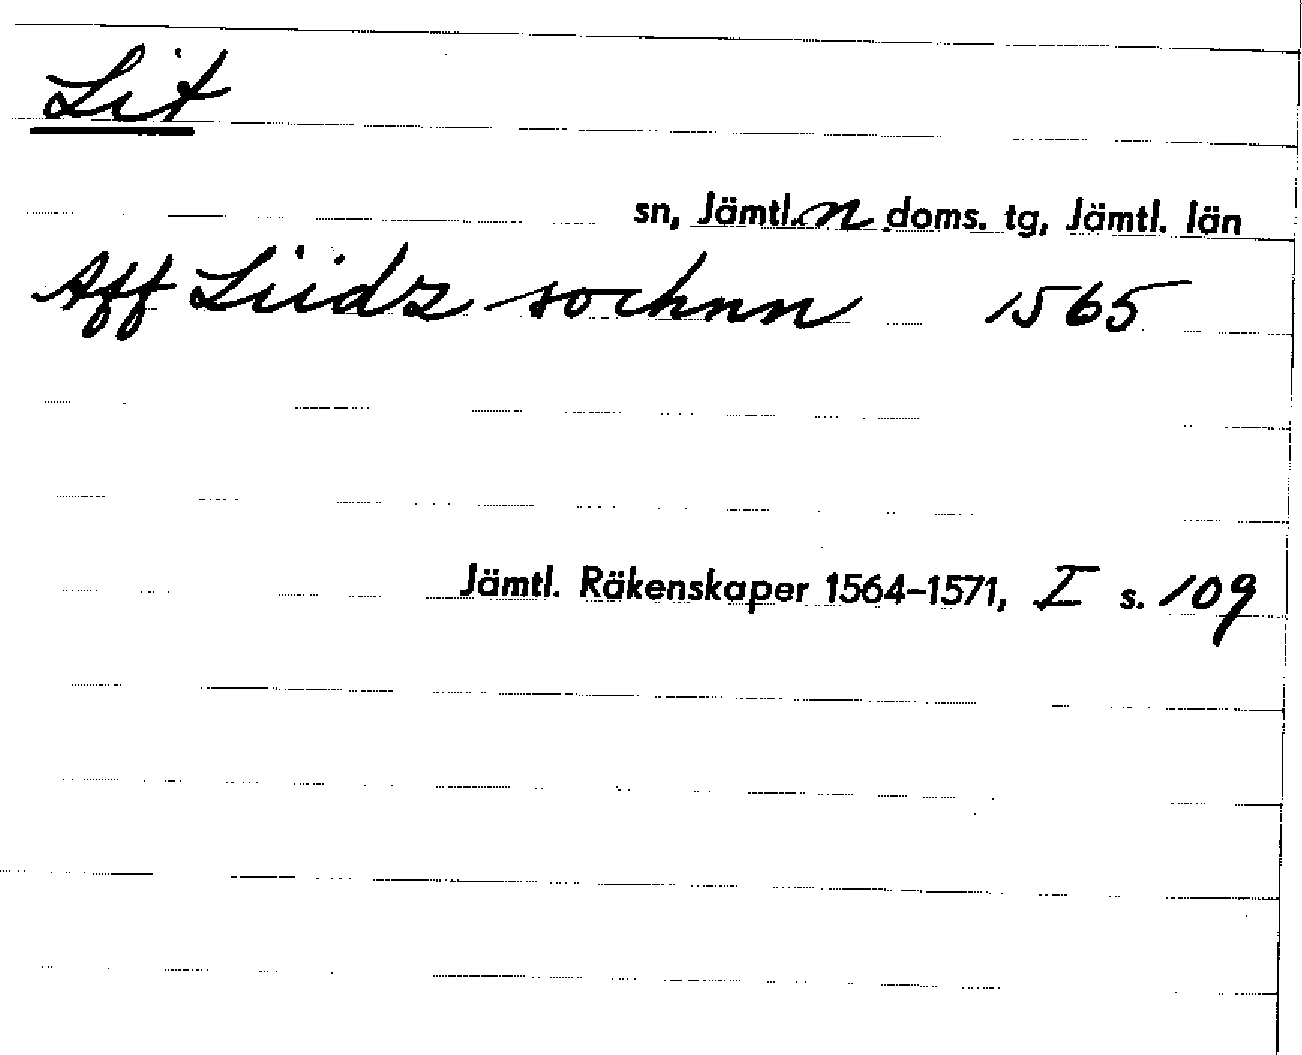 Lit
sn, Jämtl. n doms. tg, Jämtl. län
Aff Liidz sochnn 1565
Jämtl. Räkenskaper 1564-1571, I s. 109